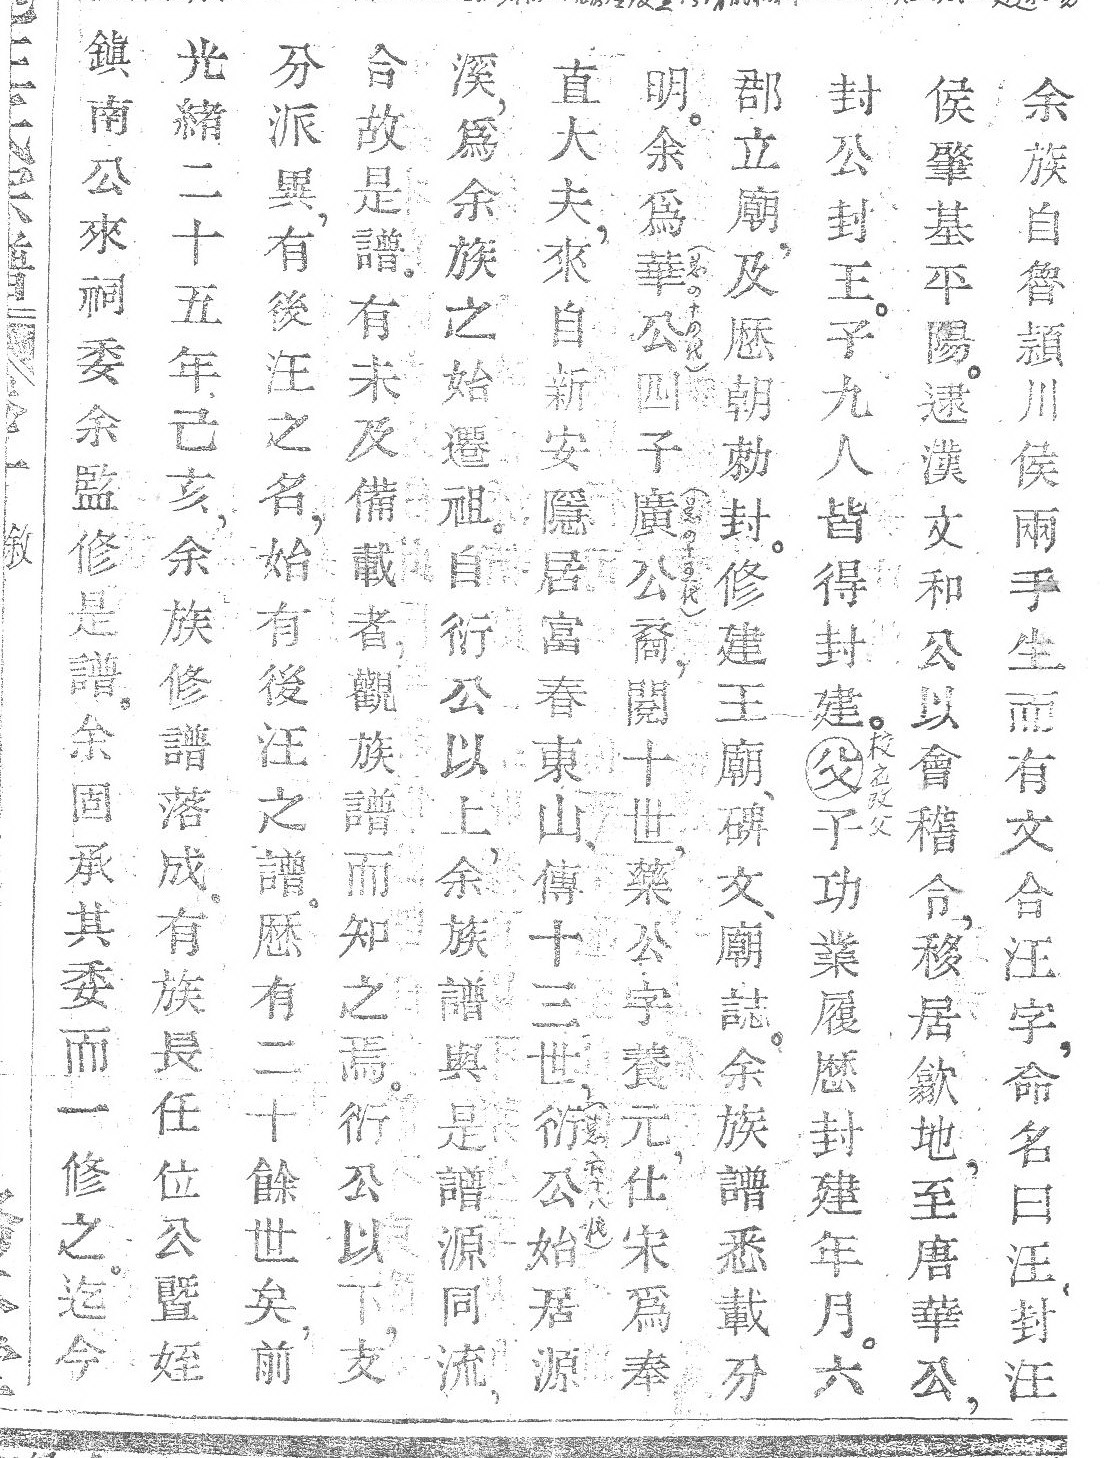 余族自魯頴川侯兩手生而有文合汪字,命名曰汪、封汪
侯肇基平陽。逮漢文和公以會稽令,移居歙地,至唐華公,
封公封王。子九人皆得封建。父子功業履歷封建年月。六
校應改父
郡立廟,及歷朝勅封。修建王廟、碑文、廟誌。余族譜悉載分
明。余爲華公四子廣公裔,閱十世,藥公字養元,仕宋爲奉
直大夫,來自新安隱居富春東山、傳十三世,衍公始居源
溪,爲余族之始遷祖。自衍公以上,余族譜與是譜源同流,
合故是譜。有未及備載者,觀族譜而知之焉。衍公以下,支
分派異,有後汪之名,始有後汪之譜。歷有二十餘世矣,前
光緒二十五年己亥,余族修譜落成。有族長任位公暨姪
鎮南公來祠委余監修是譜。余固承其委而一修之。迄今
敘